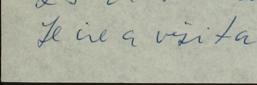 Je ire a visita